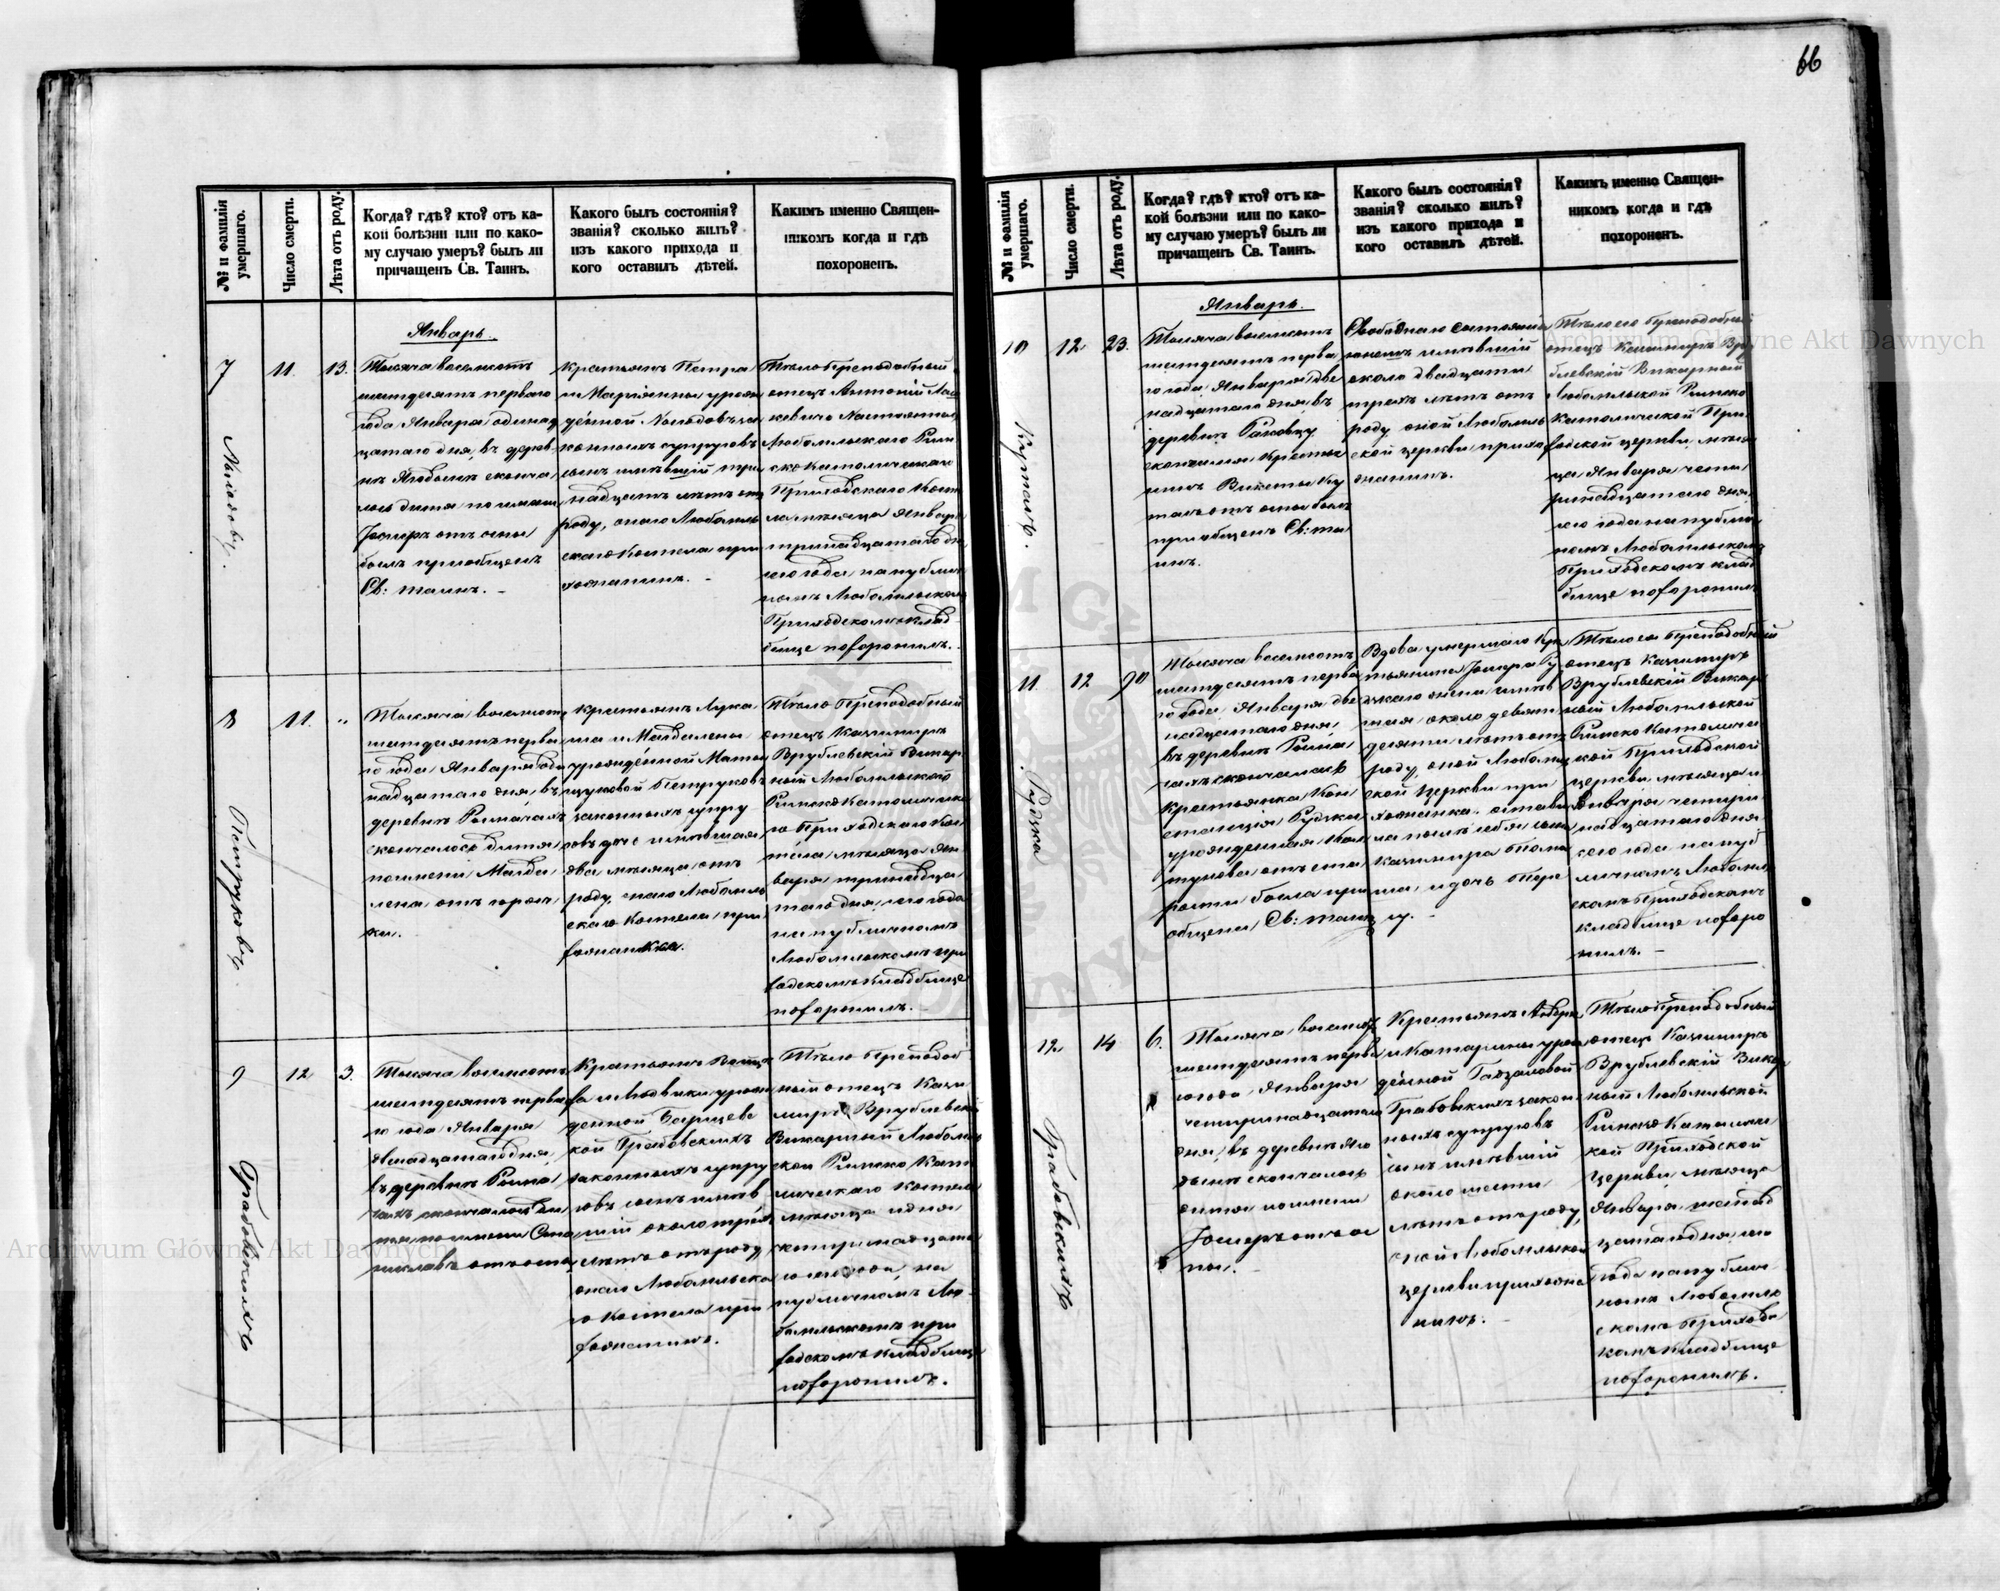 66
№ и фамилія умершаго.
Число смерти.
Лѣта отъ роду.
Когда? гдѣ? кто? отъ ка-
кой болѣзни или по како-
му случаю умеръ? былъ ли
причащенъ Св. Таинъ.
Какого былъ состоянія?
званія? сколько жилъ?
изъ какого прихода и
кого оставилъ дѣтей.
Какимъ именно Священ-
никомъ когда и гдѣ
похороненъ.
Январь.
7
11.
13.
Тысяча восемьсотъ
шестдесятъ перваго
года Января одинад
цатаго дня, въ дерев
нѣ
дитя по имени
Іосифъ отъ оспы
былъ приобщенъ
Св: таинъ. -
Крестьянъ Петра
и Маріянны урож
денной
конныхъ супруговъ
сынъ имѣвшій три
надцать лѣтъ отъ
роду, онаго Любомль
скаго Костела при
хожанинъ. -
Тѣло Преподобный
отецъ Антоній
Любомльскаго Рим
ско Католическаго
Приходскаго Кост
ла мѣсяца Января
тринадцатаго дня
сего года на публич
номъ Любомльскомъ
Приходскомъ клад
бище похоронилъ.
8
11.
"
Петруковъ
Тысяча восемьсотъ
шестдесятъ перва
го года Января оди
надцатаго дня, въ
деревнѣ Римачахъ
скончалось дитя
по имени Магда
лена, отъ горяч
ки.
Крестьянъ Лука
ша и Магдалены
урожденной
Петруковъ
законныхъ супру
говъ дочь имѣвшая
два мѣсяца отъ
роду, онаго Любомль
скаго Костела при
хожанка.
Тѣло Преподобный
отецъ Казимиръ
Врублевскій Викар
ный Любомльскаго
Римско Католическа
го Приходскаго Кос
тела мѣсяца Ян
варя тринадца
таго дня сего года
на публичномъ
Любомльскомъ при
ходскомъ кладбище
похоронилъ. -
9
12
3.
Грабовскихъ
Тысяча восемьсотъ
шестдесятъ перва
го года Января
двенадцатаго дня,
въ деревнѣ Рима
чахъ скончалось ди
тя по имени Ста
ниславъ отъ оспы
Крестьянъ
и Людвики урож
денной
кой Грабовскихъ
законныхъ супру
говъ сынъ имѣв
шій около трехъ
лѣтъ отъ роду
онаго Любомльска
го Костела при
хожанинъ.
Тѣло Преподоб
ный отецъ Кази
миръ Врублевскій
Викарный Любомль
ской Римско Като
лическаго Костела
мѣсяца и дня
четырнадцата
го сего года, на
публичномъ Лю-
бомльскомъ при
ходскомъ кладбище
похоронилъ.
№ и фамилія умершаго.
Число смерти.
Лѣта отъ роду.
Когда? гдѣ? кто? отъ ка-
кой болѣзни или по како-
му случаю умеръ? былъ ли
причащенъ Св. Таинъ.
Какого былъ состоянія?
званія? сколько жилъ?
изъ какого прихода и
кого оставилъ дѣтей.
Какимъ именно Священ-
никомъ когда и гдѣ
похороненъ.
Январь.
10
12
23.
Тысяча восемьсотъ
шестдесятъ перва
го года Января две
надцатаго дня, въ
деревнѣ
скончался Кресть
янинъ
отъ оспы былъ
приобщенъ Св: та
инъ.
Свободнаго состоянія
имѣвшій
около двадцати
трехъ лѣтъ отъ
роду оной Любомль
ской церкви прихо
жанинъ.
Тѣло его Преподобный
отецъ Казимиръ Вру
блевскій Викарный
Любомльской Римско
Католической При
ходской церкви, мѣся
ца Января четы
рнадцатаго дня,
сего года на публич
номъ Любомльскомъ
Приходскомъ клад
бище похоронилъ
11
12
90
Рудзка
Тысяча восемьсотъ
шестдесятъ перва
го года Января две
надцатаго дня,
въ деревнѣ Рима
чахъ скончалась
Крестьянка Кон
станція Рудзка
урожденная
отъ ста
рости была при
общена Св: таинъ
Вдова умершаго Кре
стьянина Іосифа Ру
дзкаго жена имѣв
шая около девяти
десяти лѣтъ отъ
роду, оной Любомль
ской Церкви при
хожанка. остави
ла послѣ себя сына
Казимира
и дочь Тере
зу. -
Тѣло ея Преподобный
отецъ Казимиръ
Врублевскій Викар
ный Любомльской
Римско Католиче
ской Приходской
церкви, мѣсяца
Января четыр
надцатаго дня
сего года на пуб
личномъ Любомль
скомъ Приходскомъ
кладбище похоро
нилъ. -
12
14
6.
Грабовскихъ
Тысяча восемьсотъ
шестдесятъ перва
го года Января
четырнадцатаго
дня, въ деревнѣ
скончалось
дитя по имени
Іосифъ отъ ос
пы. -
Крестьянъ
и Катарины урож
денной
Грабовскихъ закон
ныхъ супруговъ
сынъ имѣвшій
около шести
лѣтъ отъ роду,
оной Любомльской
церкви прихожа
нинъ. -
Тѣло Преподобный
отецъ Казимиръ
Врублевскій Викар
ный Любомльской
Римско Католичес
кой Приходской
Церкви мѣсяца
Января шестнад
цатаго дня, сего
года на публич
номъ Любомль
скомъ Приходс
комъ кладбище
похоронилъ.
Archiwum Główne Akt Dawnych
Archiwum Główne Akt Dawnych